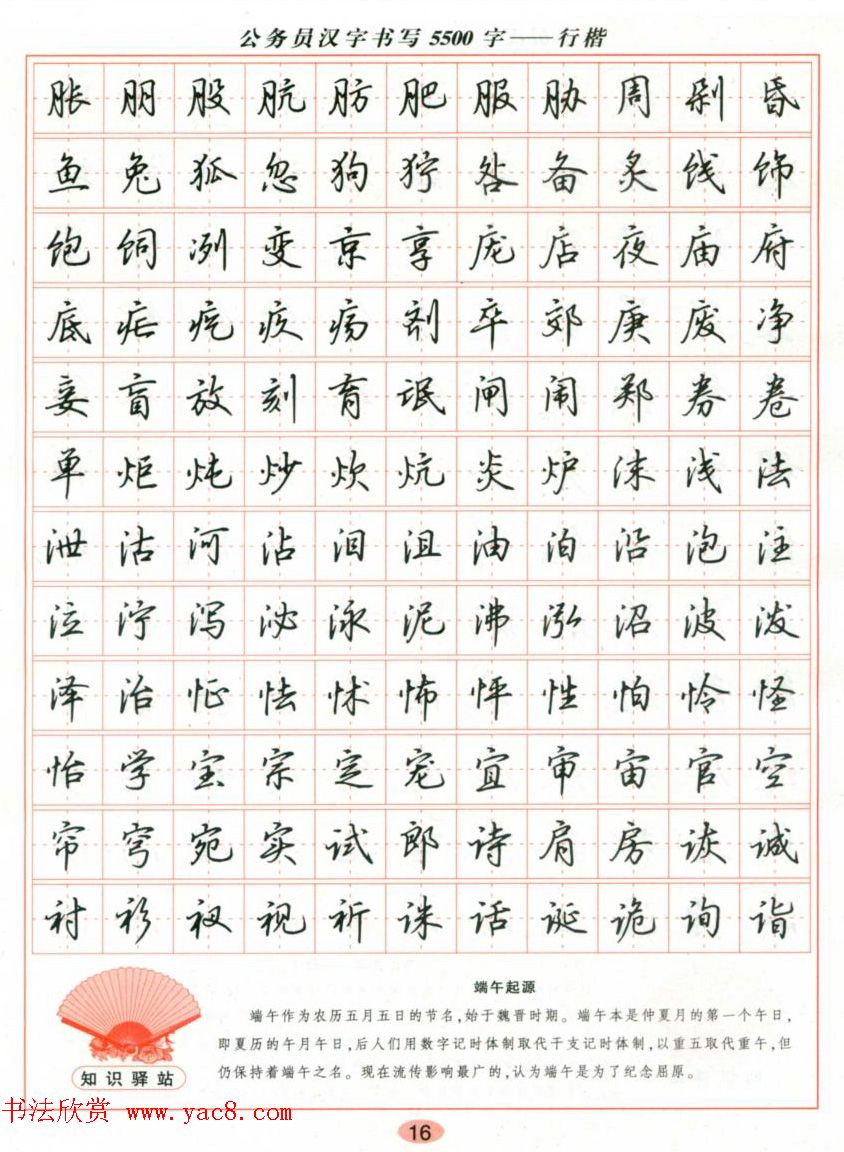 公务员汉字书写5500字——行楷
胀朋股肮肪肥服胁周剁昏
鱼兔狐忽狗狞咎备炙饯饰
饱饲冽变京享庞店夜庙府
底疟疙疚疡剂卒郊庚废净
妾盲放刻育氓闸闹郑券卷
单炬炖炒炊炕炎炉沫浅法
泄沽河沾泪沮油泊沿泡注
泣泞泻泌泳泥沸泓沼波泼
泽治怔怯怵怖怦性怕怜怪
怡学宝宗定宠宜审宙官空
帘穹宛实试郎诗肩房诙诚
衬衫衩视祈诛话诞诡询诣
端午起源
端午作为农历五月五日的节名,始于魏晋时期。端午本是仲夏月的第一个午日,
即夏历的午月午日,后人们用数字记时体制取代干支记时体制,以重五取代重午,但
仍保持着端午之名。现在流传影响最广的,认为端午是为了纪念屈原。
知识驿站
书法欣赏 www.yac8.com
16